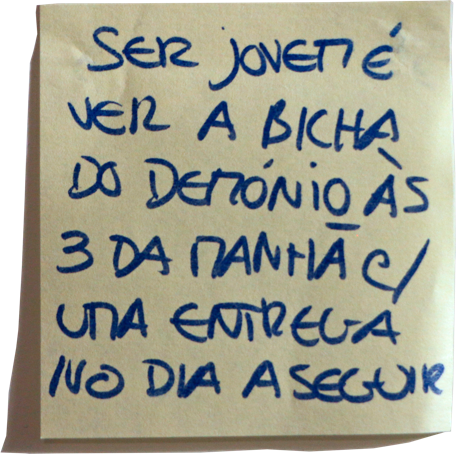 SER JOVEM É
VER A BICHA
DO DEMÓNIO ÀS
3 DA MANHÃ C/
UMA ENTREGA
NO DIA A SEGUIR